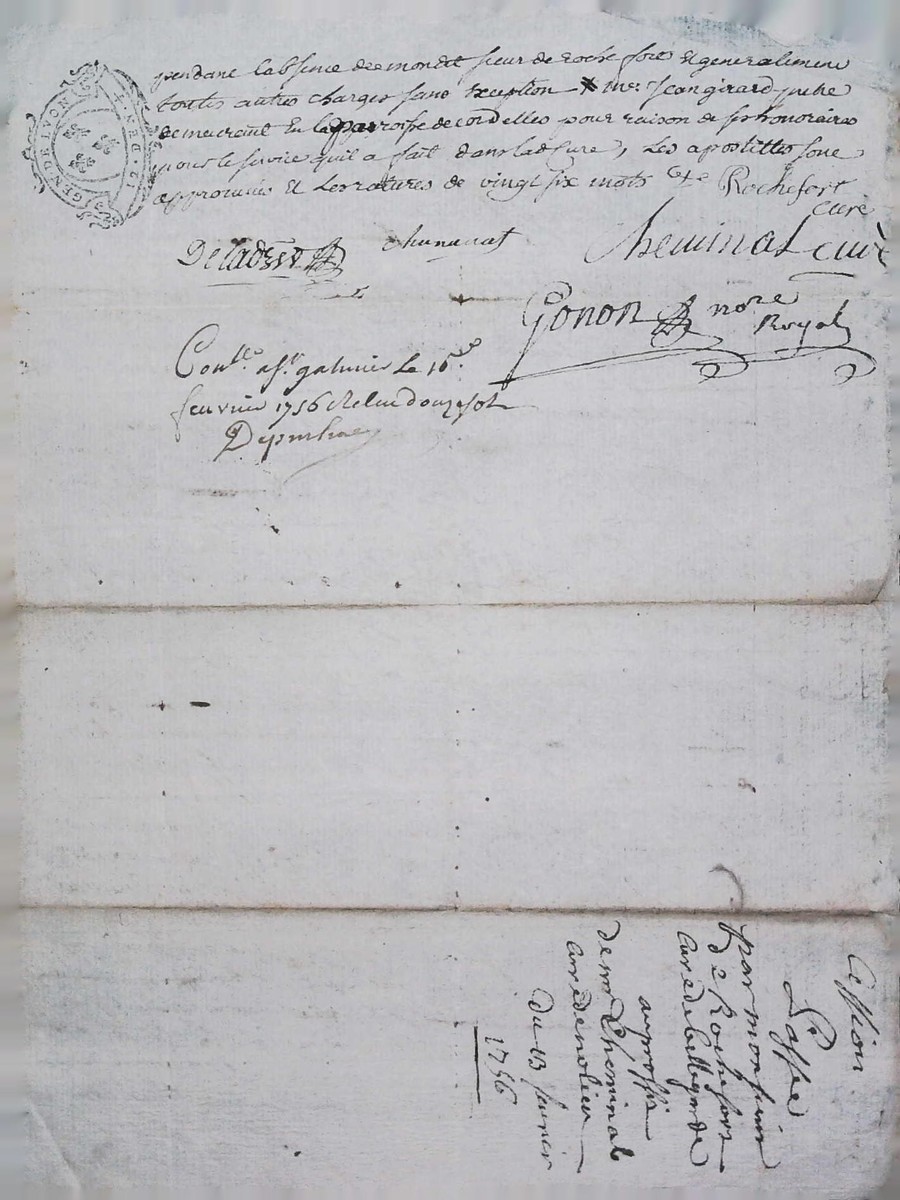 GEN DE LYON * DEN. 19
pendant labsence de mondit sieur de rochefort Et generalement
toutes autres charges sans Exception * mre. Jean girard pretre
demeurant En la parroisse de cordelles pour raison de ses honoraires
pour le service quil a fait dans lad cure, Les apostilles sont
approuvées Et Les ratures de vingt six mots
Rochefort
curé
Cheminal curé
Gonon nore
Royal
Conllé a st. galmier Le 16
feuvrier 1756 Recu douze sols
Cession
Passée
par monsieur
de Rochefort
Curé de bellegarde
au proffit
de mr Cheminal
curé de nolieu
Du 13 feuvrier
1756